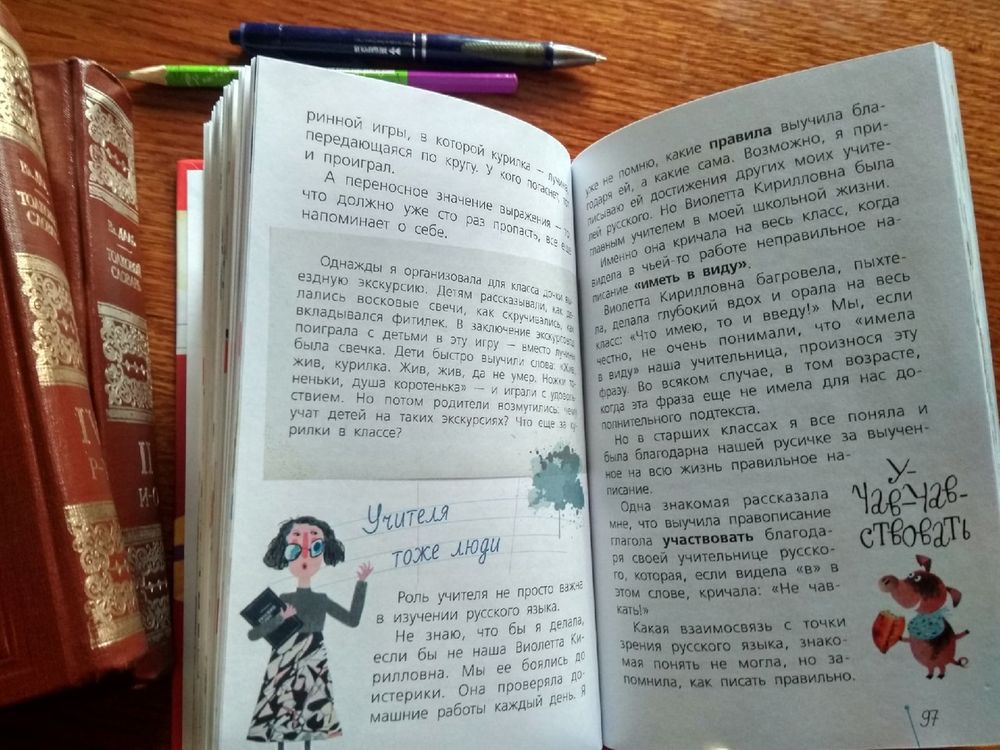 ринной игры, в которой курилка — лучина,
передающаяся по кругу. у кого погаснет, тот
и проиграл.
А переносное значение выражения — то,
что должно уже сто раз пропасть, все еще
напоминает о себе.
Однажды я организовала для класса дочки вы-
ездную экскурсию. Детям рассказывали, как де-
лались восковые свечи, как скручивались, как
вкладывался фитилек. В заключение экскурсовод
поиграла с детьми в эту игру — вместо лучины
была свечка. Дети быстро выучили слова: «Жив,
жив, курилка. Жив, жив, да не умер. Ножки то-
неньки, душа коротенька» — и играли с удоволь-
ствием. Но потом родители возмутились: чему
учат детей на таких экскурсиях? Что еще за ку-
рилки в классе?
Учителя
тоже люди
Роль учителя не просто важна
в изучении русского языка.
Не знаю, что бы я делала,
если бы не наша Виолетта Ки-
рилловна. Мы ее боялись до
истерики. Она проверяла до-
машние работы каждый день. Я
уже не помню, какие правила выучила бла-
годаря ей, а какие сама. Возможно, я при-
писываю ей достижения других моих учите-
лей русского. Но Виолетта Кирилловна была
главным учителем в моей школьной жизни.
Именно она кричала на весь класс, когда
видела в чьей-то работе неправильное на-
писание «иметь в виду».
Виолетта Кирилловна багровела, пыхте-
ла, делала глубокий вдох и орала на весь
класс: «Что имею, то и введу!» Мы, если
честно, не очень понимали, что «имела
в виду» наша учительница, произнося эту
фразу. Во всяком случае, в том возрасте,
когда эта фраза еще не имела для нас до-
полнительного подтекста.
Но в старших классах я все поняла и
была благодарна нашей русичке за выучен-
ное на всю жизнь правильное на-
писание.
Одна знакомая рассказала
мне, что выучила правописание
глагола участвовать благода-
ря своей учительнице русско-
го, которая, если видела «в» в
этом слове, кричала: «Не чав-
кать!»
Какая взаимосвязь с точки
зрения русского языка, знако-
мая понять не могла, но за-
помнила, как писать правильно.
У-
Чав-Чав-
ствовать
97
Вл. Даль
Толковый
словарь
IV
Р-
Вл. Даль
Толковый
словарь
II
И-О